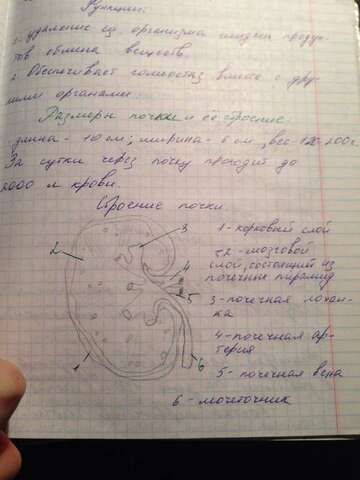 Функции:
1. удаление из организма жидких продук
тов обмена веществ.
2. Обеспечивает гомеостаз вместе с дру
гими органами.
Размеры почки и её строение.
длина - 10 см; ширина - 6 см, вес 120-200г.
За сутки через почку проходит до
2000 л крови.
Строение почки
1 - корковый слой
2 - мозговой
слой, состоящий из
почечных пирамид
3 - почечная лохан-
ка
4 - почечная ар-
терия
5 - почечная вена
6 - мочеточник
3
2
4
5
1
6